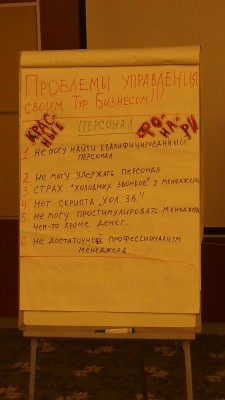 Проблемы управления
своим Тур Бизнесом!!!
Красные
Персонал
Фонари
1 Не могу найти квалифицированный
персонал
2 Не могу удержать персонал
3 Страх "холодных звонков" у менеджера
4 Нет скрипта "Хол. зв."
5 Не могу простимулировать менеджера
чем-то кроме денег.
6 Не достаточный профессионализм
менеджера.